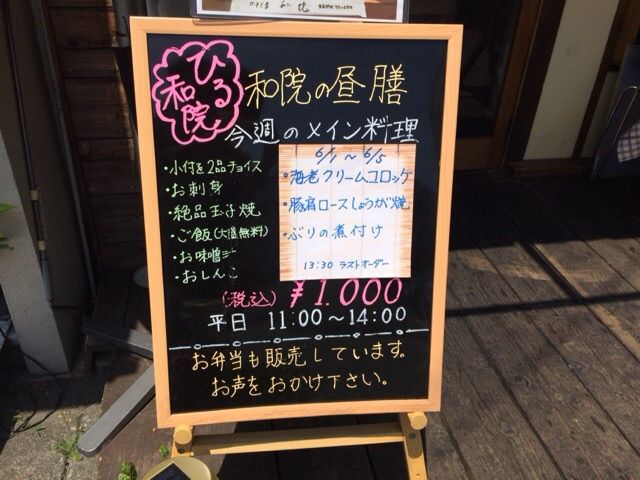 ひる
和院
和院の昼膳
今週のメイン料理
・小付を2品チョイス
・お刺身
・絶品玉子焼
・ご飯(大盛無料)
・お味噌汁
・おしんこ
6/1〜6/5
・海老クリームコロッケ
・豚肩ロースしょうが焼
・ぶりの煮付け
13:30 ラストオーダー
(税込) ¥1.000
平日 11:00〜14:00
お弁当も販売しています。
お声をおかけ下さい。